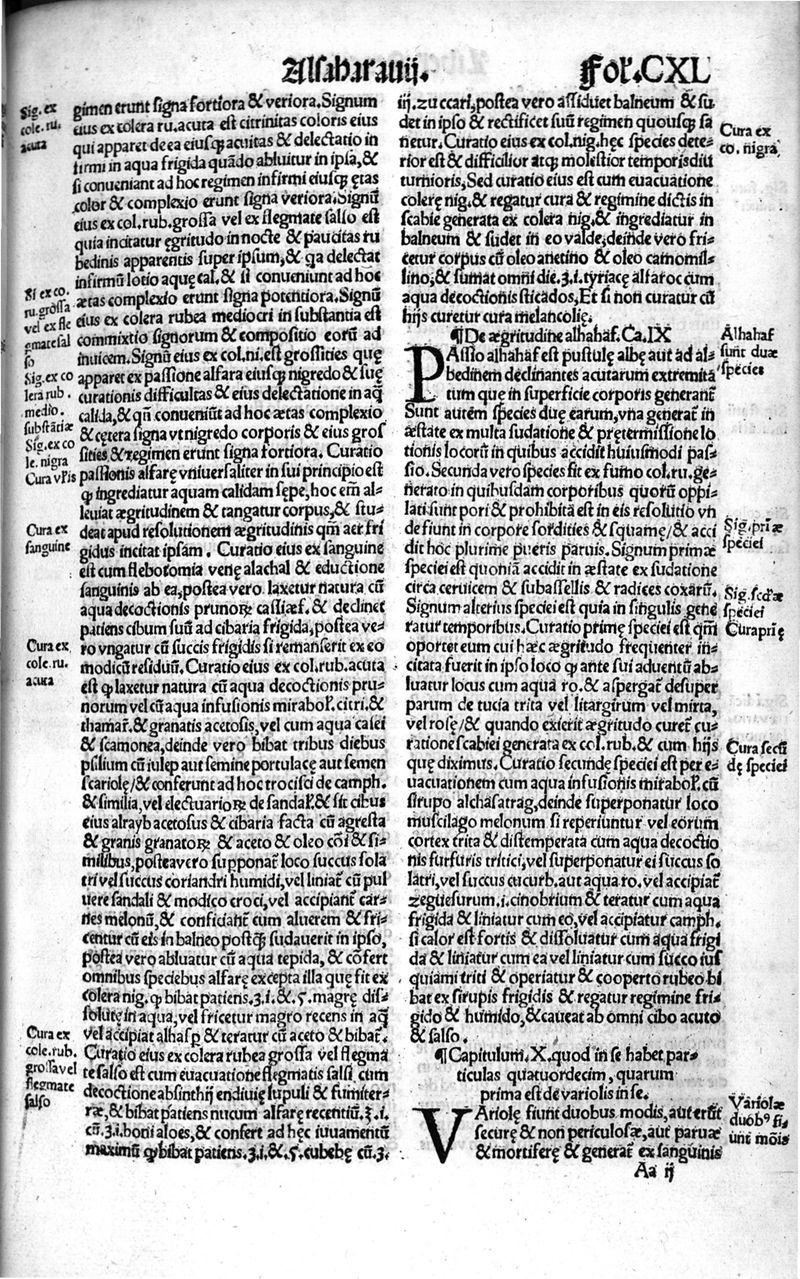 Alsabarauij.
Fol.CXL
Sig. ex
cole. ru.
acuta
gimen erunt signa fortiora & veriora.Signum
eius ex colera ru.acuta est citrinitas coloris eius
qui apparet de ea eiusq; acuitas & delectatio in
firmi in aqua frigida quãdo abluitur in ipsa,&
si conueniant ad hoc regimen infirmi eiusq; ętas
color & complexio erunt signa veriora.Signũ
eius ex col.rub.grossa vel ex flegmate salso est
quia incitatur ęgritudo in nocte & paucitas ru
bedinis apparentis super ipsum,& qa delectat
infirmũ lotio aquę cal. & si conueniunt ad hoc
Si ex co.
ru.grossa
vel ex fle
gmate sal
so
ætas complexio erunt signa potentiora.Signũ
eius ex colera rubea mediocri in substantia est
commixtio signorum & compositio eorũ ad
inuicem.Signũ eius ex col.ni.est grossities quę
Sig.ex co
lera rub.
medio.
substãtiæ
apparet ex passione alfara eiusq; nigredo & suę
curationis difficultas & eius delectatione in aq̃
calida,& qñ conueniũt ad hoc ætas complexio
Sig.ex co
le. nigra
& cętera signa vt nigredo corporis & eius gros
sities,& regimen erunt signa fortiora. Curatio
Cura vľis
passionis alfarę vniuersaliter in sui principio est
ꝙ ingrediatur aquam calidam sępe,hoc em̃ al-
leuiat ægritudinem & tangatur corpus,& stu-
Cura ex
sanguine
deat apud resolutionem ægritudinis qm̃ aer fri
gidus incitat ipsam. Curatio eius ex sanguine
est cum flebotomia venę alachal & eductione
sanguinis ab ea,postea vero laxetur natura cũ
aqua decoctionis prunoꝝ cassiæf. & declinet
patiens cibum suũ ad cibaria frigida,postea ve-
Cura ex
cole.ru.
acuta
ro vngatur cũ succis frigidis si remanserit ex eo
modicũ residuũ.Curatio eius ex col.rub.acuta
est ꝙ laxetur natura cũ aqua decoctionis pru-
norum vel cũ aqua infusionis mirabol.citri.&
thamar.& granatis acetosis,vel cum aqua casei
& scamonea,deinde vero bibat tribus diebus
psilium cũ iulep aut semine portulacę aut semen
scariolę/& conferunt ad hoc trocisci de camph.
& similia,vel electuarioꝝ de sandal.& sit cibus
eius alrayb acetosus & cibaria facta cũ agresta
& granis granatoꝝ & aceto & oleo cõi & si-
milibus,postea vero supponat̃ loco succus sola
tri vel succus coriandri humidi,vel liniat̃ cũ pul
uere sandali & modico croci,vel accipiant̃ car-
nes melonũ,& conficiant̃ cum aluerem & fri-
centur cũ eis in balneo postq̃ sudauerit in ipso,
postea vero abluatur cũ aqua tepida, & cõfert
omnibus speciebus alfarę excepta illa quę fit ex
colera nig. ꝙ bibat patiens.ʒ.i.& .ꜱ. magrę dis-
solutę in aqua,vel fricetur magro recens in aq̃
Cura ex
cole.rub.
grossa vel
flegmate
salso
vel accipiat alhasp & teratur cũ aceto & bibat̃.
Curatio eius ex colera rubea grossa vel flegma
te salso est cum euacuatione flegmatis salsi cum
decoctione absinthij endiuię lupuli & fumiter-
ræ,& bibat patiens nucum alfarę recentiũ,ʒ.i.
cũ.ʒ.i.boni aloes,& confert ad hęc iuuamentũ
maximũ ꝙ bibat patiens.ʒ.i.&.ꜱ.cubebę cũ.ʒ.
iij.zuccari,postea vero assiduet balneum & su
det in ipso & rectificet suũ regimen quousq; sa
Cura ex
co.nigra
netur.Curatio eius ex col.nig.hęc species dete-
rior est & difficilior atq; molestior temporis diu
turnioris.Sed curatio eius est cum euacuatione
colerę nig.& regatur cura & regimine dictis in
scabie generata ex colera nig.& ingrediatur in
balneum & sudet in eo valde;deinde vero fri-
cetur corpus cũ oleo anetino & oleo camomil-
lino;& sumat omni die.ʒ.i.tyriacę alfaroc cum
aqua decoctionis sticados,Et si non curatur cũ
hijs curetur cura melancolię.
¶De ægritudine alhahaf. Ca.IX
Alhahaf
sunt duæ
species
PAssio alhahaf est pustulę albę aut ad al-
bedinem declinantes acutarum extremita
tum que in superficie corporis generant̃
Sunt autem species duę earum,vna generat̃ in
æstate ex multa sudatione & prętermissione lo
tionis locorũ in quibus accidit huiusmodi pas-
sio.Secunda vero species fit ex fumo col.ru.ge-
nerato in quibusdam corporibus quorũ oppi-
lati sunt pori & prohibita est in eis resolutio vn
Sig.pri.æ
speciei
de fiunt in corpore sordities & squamę/& acci
dit hoc plurime pueris paruis.Signum primæ
speciei est quoniã accidit in æstate ex sudatione
Sig.scd.æ
speciei
circa ceruicem & subassellis & radices coxarũ.
Signum alterius speciei est quia in singulis gene
Cura pri.ę
ratur temporibus.Curatio primę speciei est qm̃
oportet eum cui hæc ægritudo frequenter in-
citata fuerit in ipso loco ꝙ ante sui aduentũ ab-
luatur locus cum aqua ro.& aspergat̃ desuper
parum de tucia trita vel litargirum vel mirta,
vel rosę/& quando exierit ægritudo curet̃ cu-
Cura secũ
dę speciei
ratione scabiei generata ex col.rub.& cum hijs
quę diximus. Curatio secundę speciei est per e-
uacuationem cum aqua infusionis mirabol. cũ
sirupo alchasatrag,deinde superponatur loco
muscilago melonum si reperiuntur vel eorum
cortex trita & distemperata cum aqua decoctio
nis furfuris tritici,vel superponatur ei succus so
latri,vel succus cucurb.aut aqua ro.vel accipiat̃
zegiesurum.i.cinobrium & teratur cum aqua
frigida & liniatur cum eo,vel accipiatur camph.
si calor est fortis & dissoluatur cum aqua frigi
da & liniatur cum ea vel liniatur cum succo ius
quiami triti & operiatur & cooperto rubeo bi
bat ex sirupis frigidis & regatur regimine fri-
gido & humido,& caueat ab omni cibo acuto
& salso.
¶Capitulum.X.quod in se habet par-
ticulas quatuordecim, quarum
prima est de variolis in se.
Variolæ
duob⁹ fi.
unt mõis
VAriolę fiunt duobus modis,aut erũt
securę & non periculosæ,aut paruæ
& mortiferę & generat̃ ex sanguinis
Aa ij